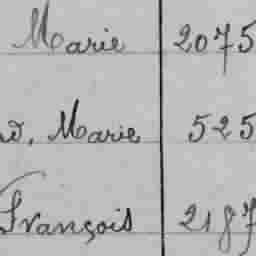 Marie 2075
d, Marie 525
François 2187